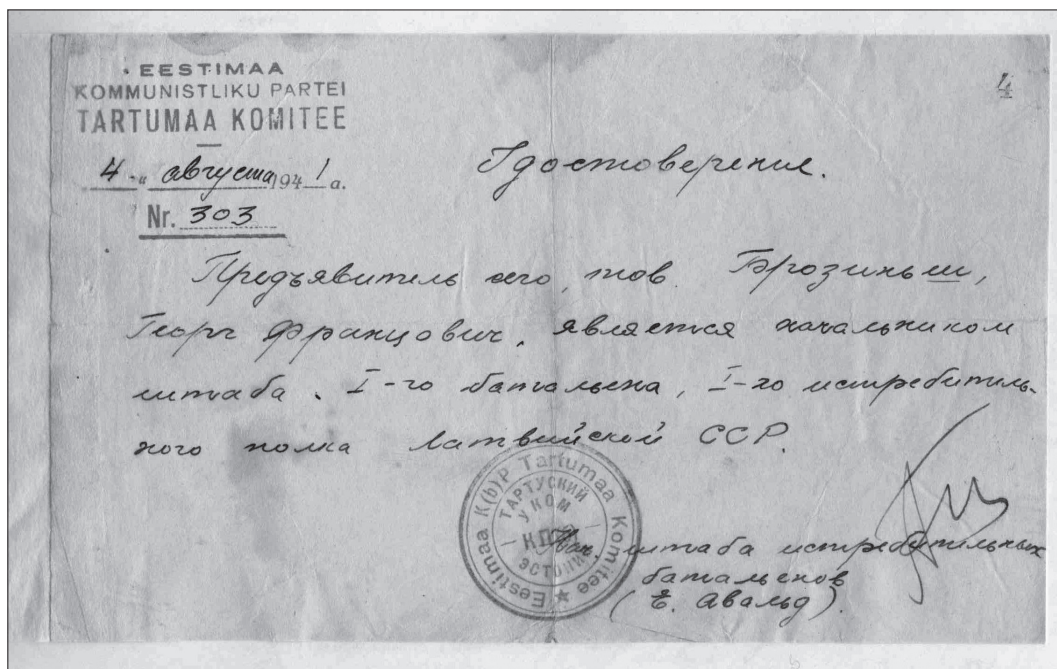 EESTIMAA
KOMMUNISTLIKU PARTEI
TARTUMAA KOMITEE
4 " августа 1941 a.
Nr. 303
4
Удостоверение.
Предъявитель сего, тов. Брозиньш,
Георг Францович, является начальником
штаба I-го баталиона, I-го истребитель-
ного полка Латвийской ССР.
Eestimaa K(b)P Tartumaa Komitee
ТАРТУСКИЙ
УКОМ
ЭСТОНИИ
Нач. штаба истребительных
баталионов
(Е. Авальд).